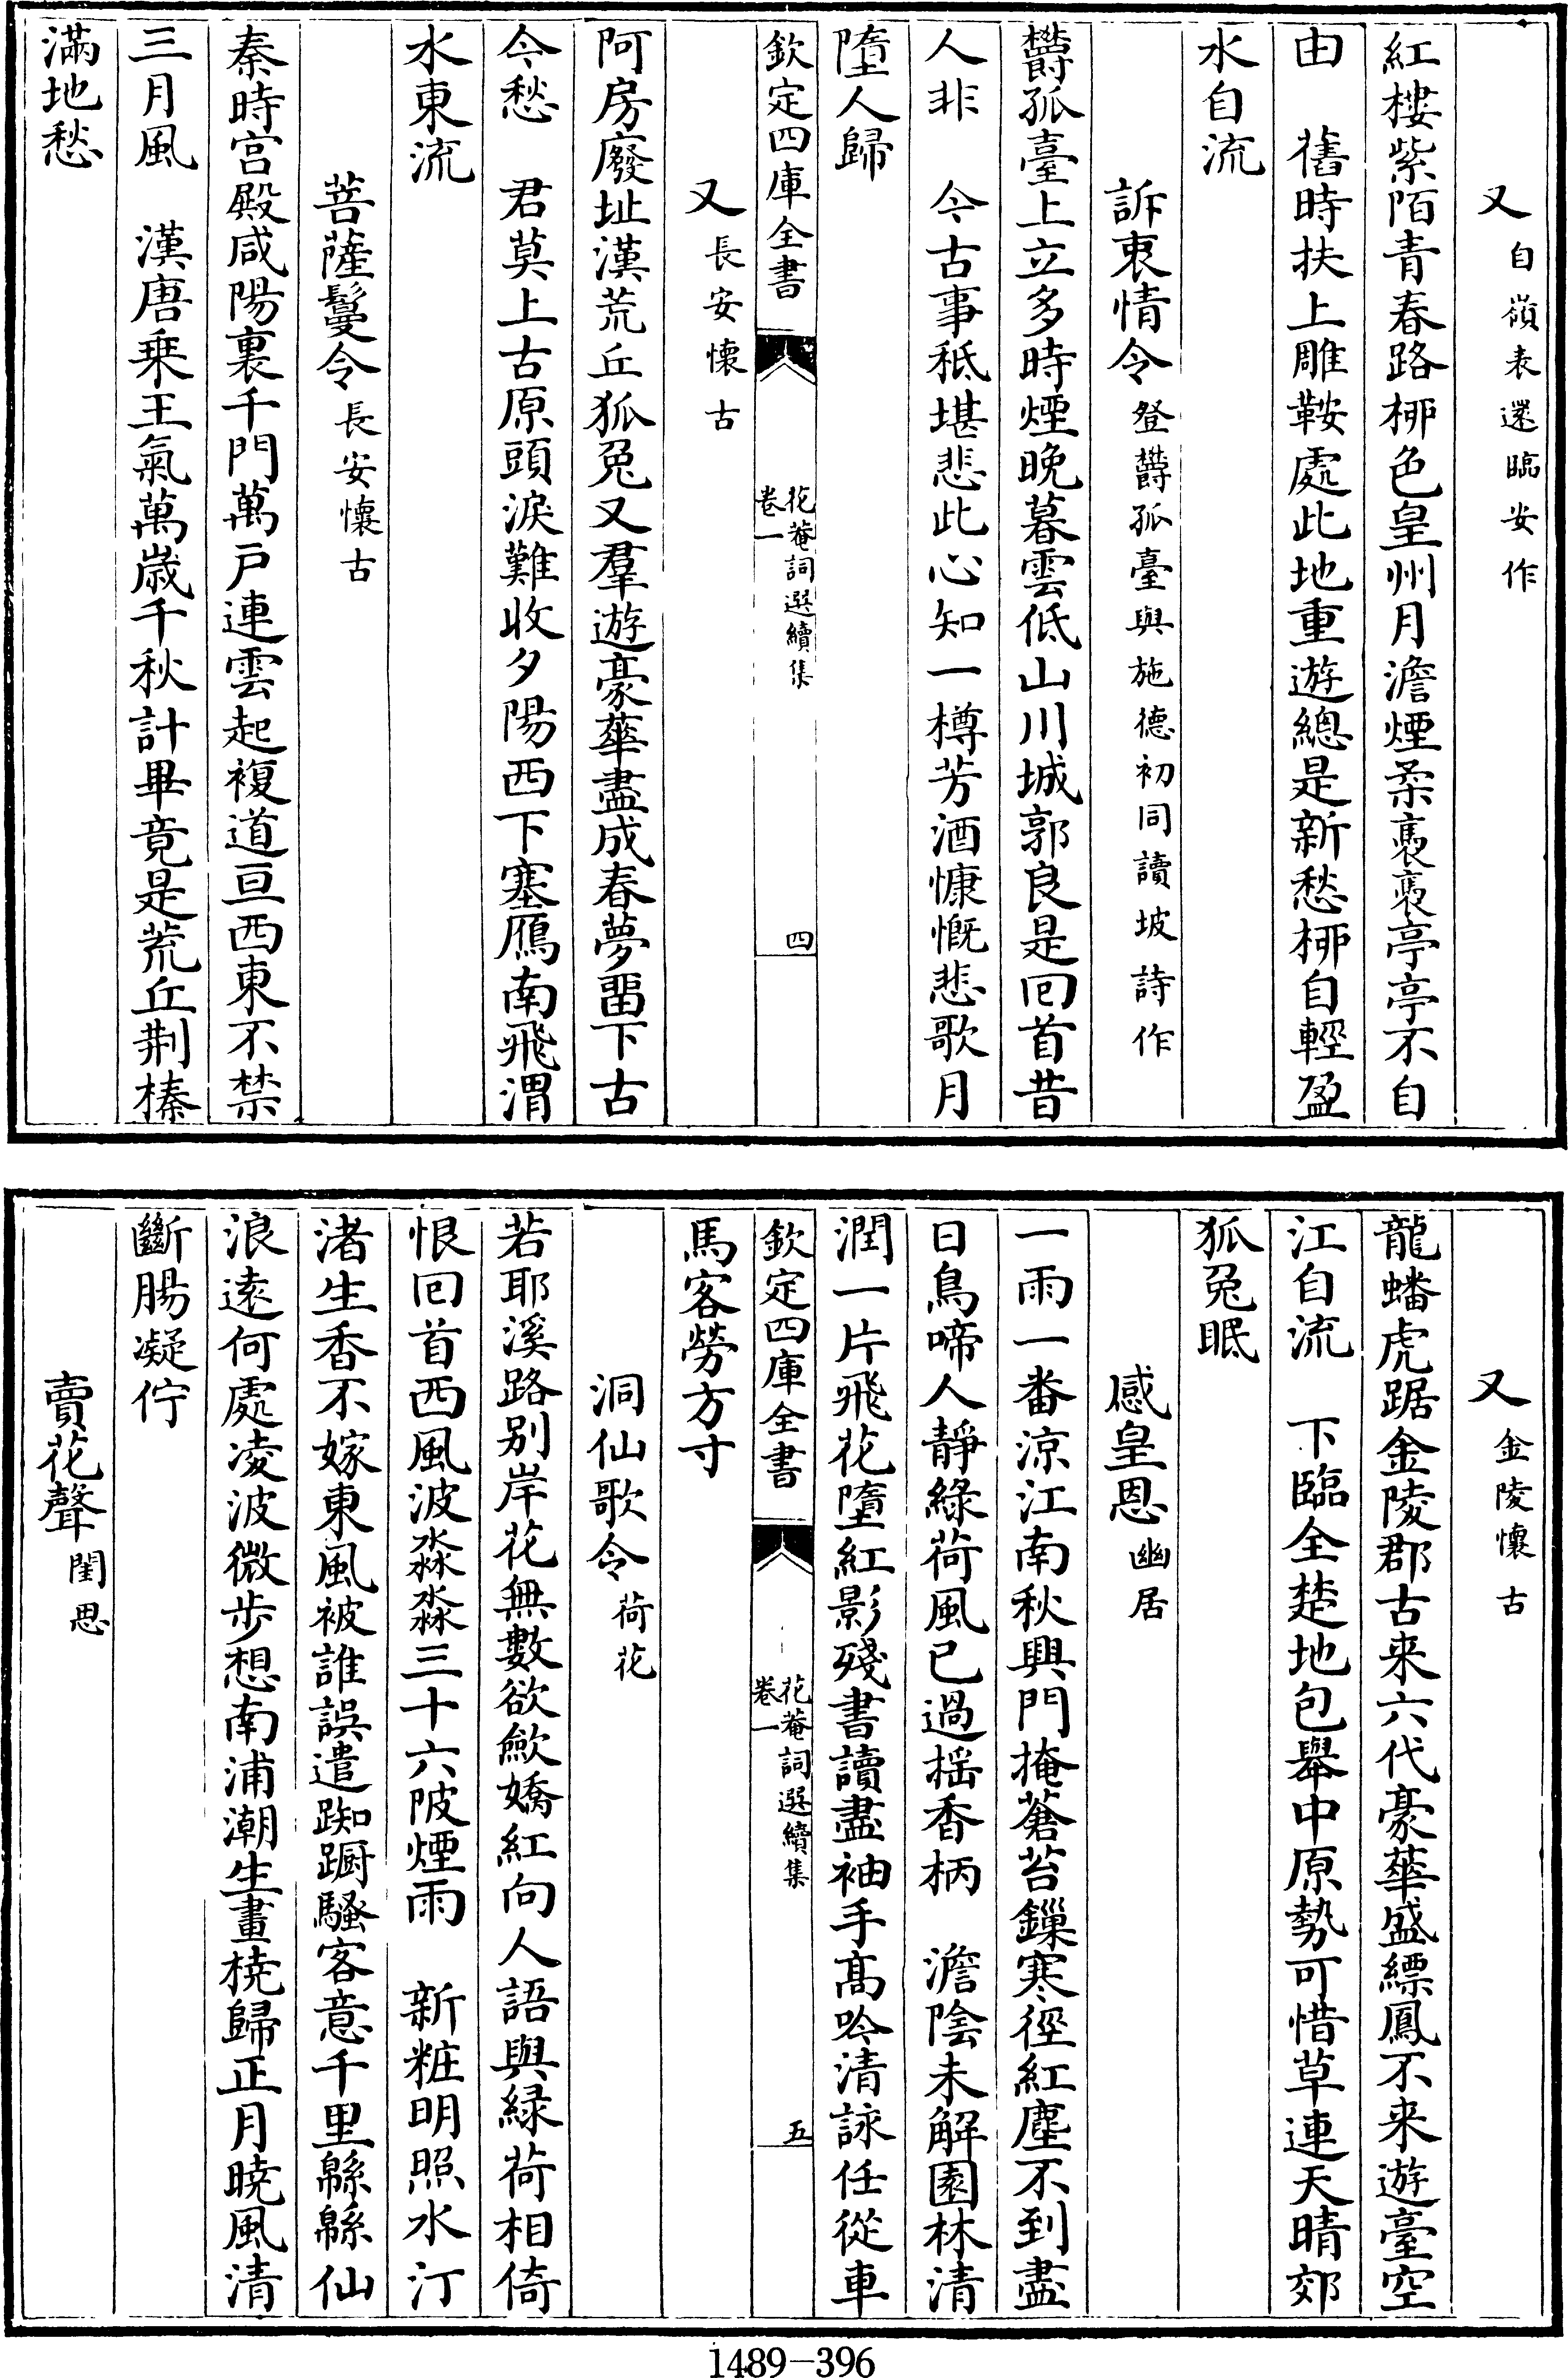 又自嶺表還臨安作
紅樓紫陌青春路栁色皇州月澹煙柔裊裊亭亭不自
由　舊時扶上雕鞍處此地重遊總是新愁栁自輕盈
水自流
訴衷情令登欝孤臺與施德初同讀坡詩作
欝孤臺上立多時煙晚暮雲低山川城郭良是回首昔
人非　今古事秪堪悲此心知一樽芳酒慷慨悲歌月
墮人歸
欽定四庫全書
花菴詞選續集
卷一
四
又長安懷古
阿房廢址漢荒丘狐兔又羣遊豪華盡成春夢畱下古
今愁　君莫上古原頭淚難收夕陽西下塞鴈南飛渭
水東流
菩薩鬘令長安懷古
秦時宮殿咸陽裏千門萬戶連雲起複道亘西東不禁
三月風　漢唐乗王氣萬歲千秋計畢竟是荒丘荆榛
滿地愁
又金陵懷古
龍蟠虎踞金陵郡古来六代豪華盛縹鳳不来遊臺空
江自流　下臨全楚地包舉中原勢可惜草連天晴郊
狐兔眠
感皇恩幽居
一雨一番涼江南秋興門掩蒼苔鏁寒徑紅塵不到盡
日鳥啼人靜綠荷風已過揺香柄　澹陰未解園林清
潤一片飛花墮紅影殘書讀盡袖手髙吟清詠任從車
馬客勞方寸
欽定四庫全書
花菴詞選續集
卷一
五
洞仙歌令荷花
若耶溪路别岸花無數欲歛嬌紅向人語與緑荷相倚
恨回首西風波淼淼三十六陂煙雨　新粧明照水汀
渚生香不嫁東風被誰誤遣踟蹰騷客意千里緜緜仙
浪遠何處凌波微步想南浦潮生畫橈歸正月曉風清
斷腸凝佇
賣花聲閨思
1489－396